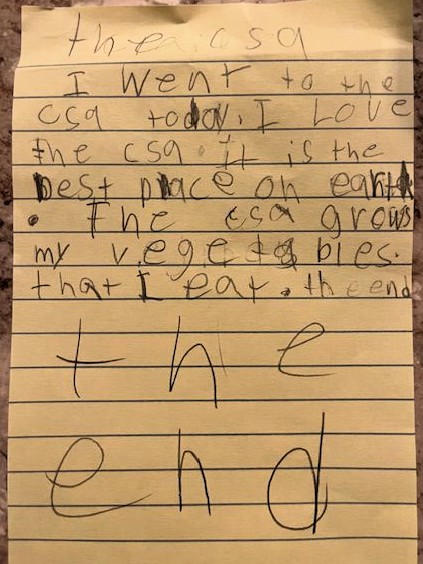 the csa
I went to the
csa today. I Love
the csa. It is the
best place on earth
. The csa grows
my vegetables.
that I eat. the end
the
end